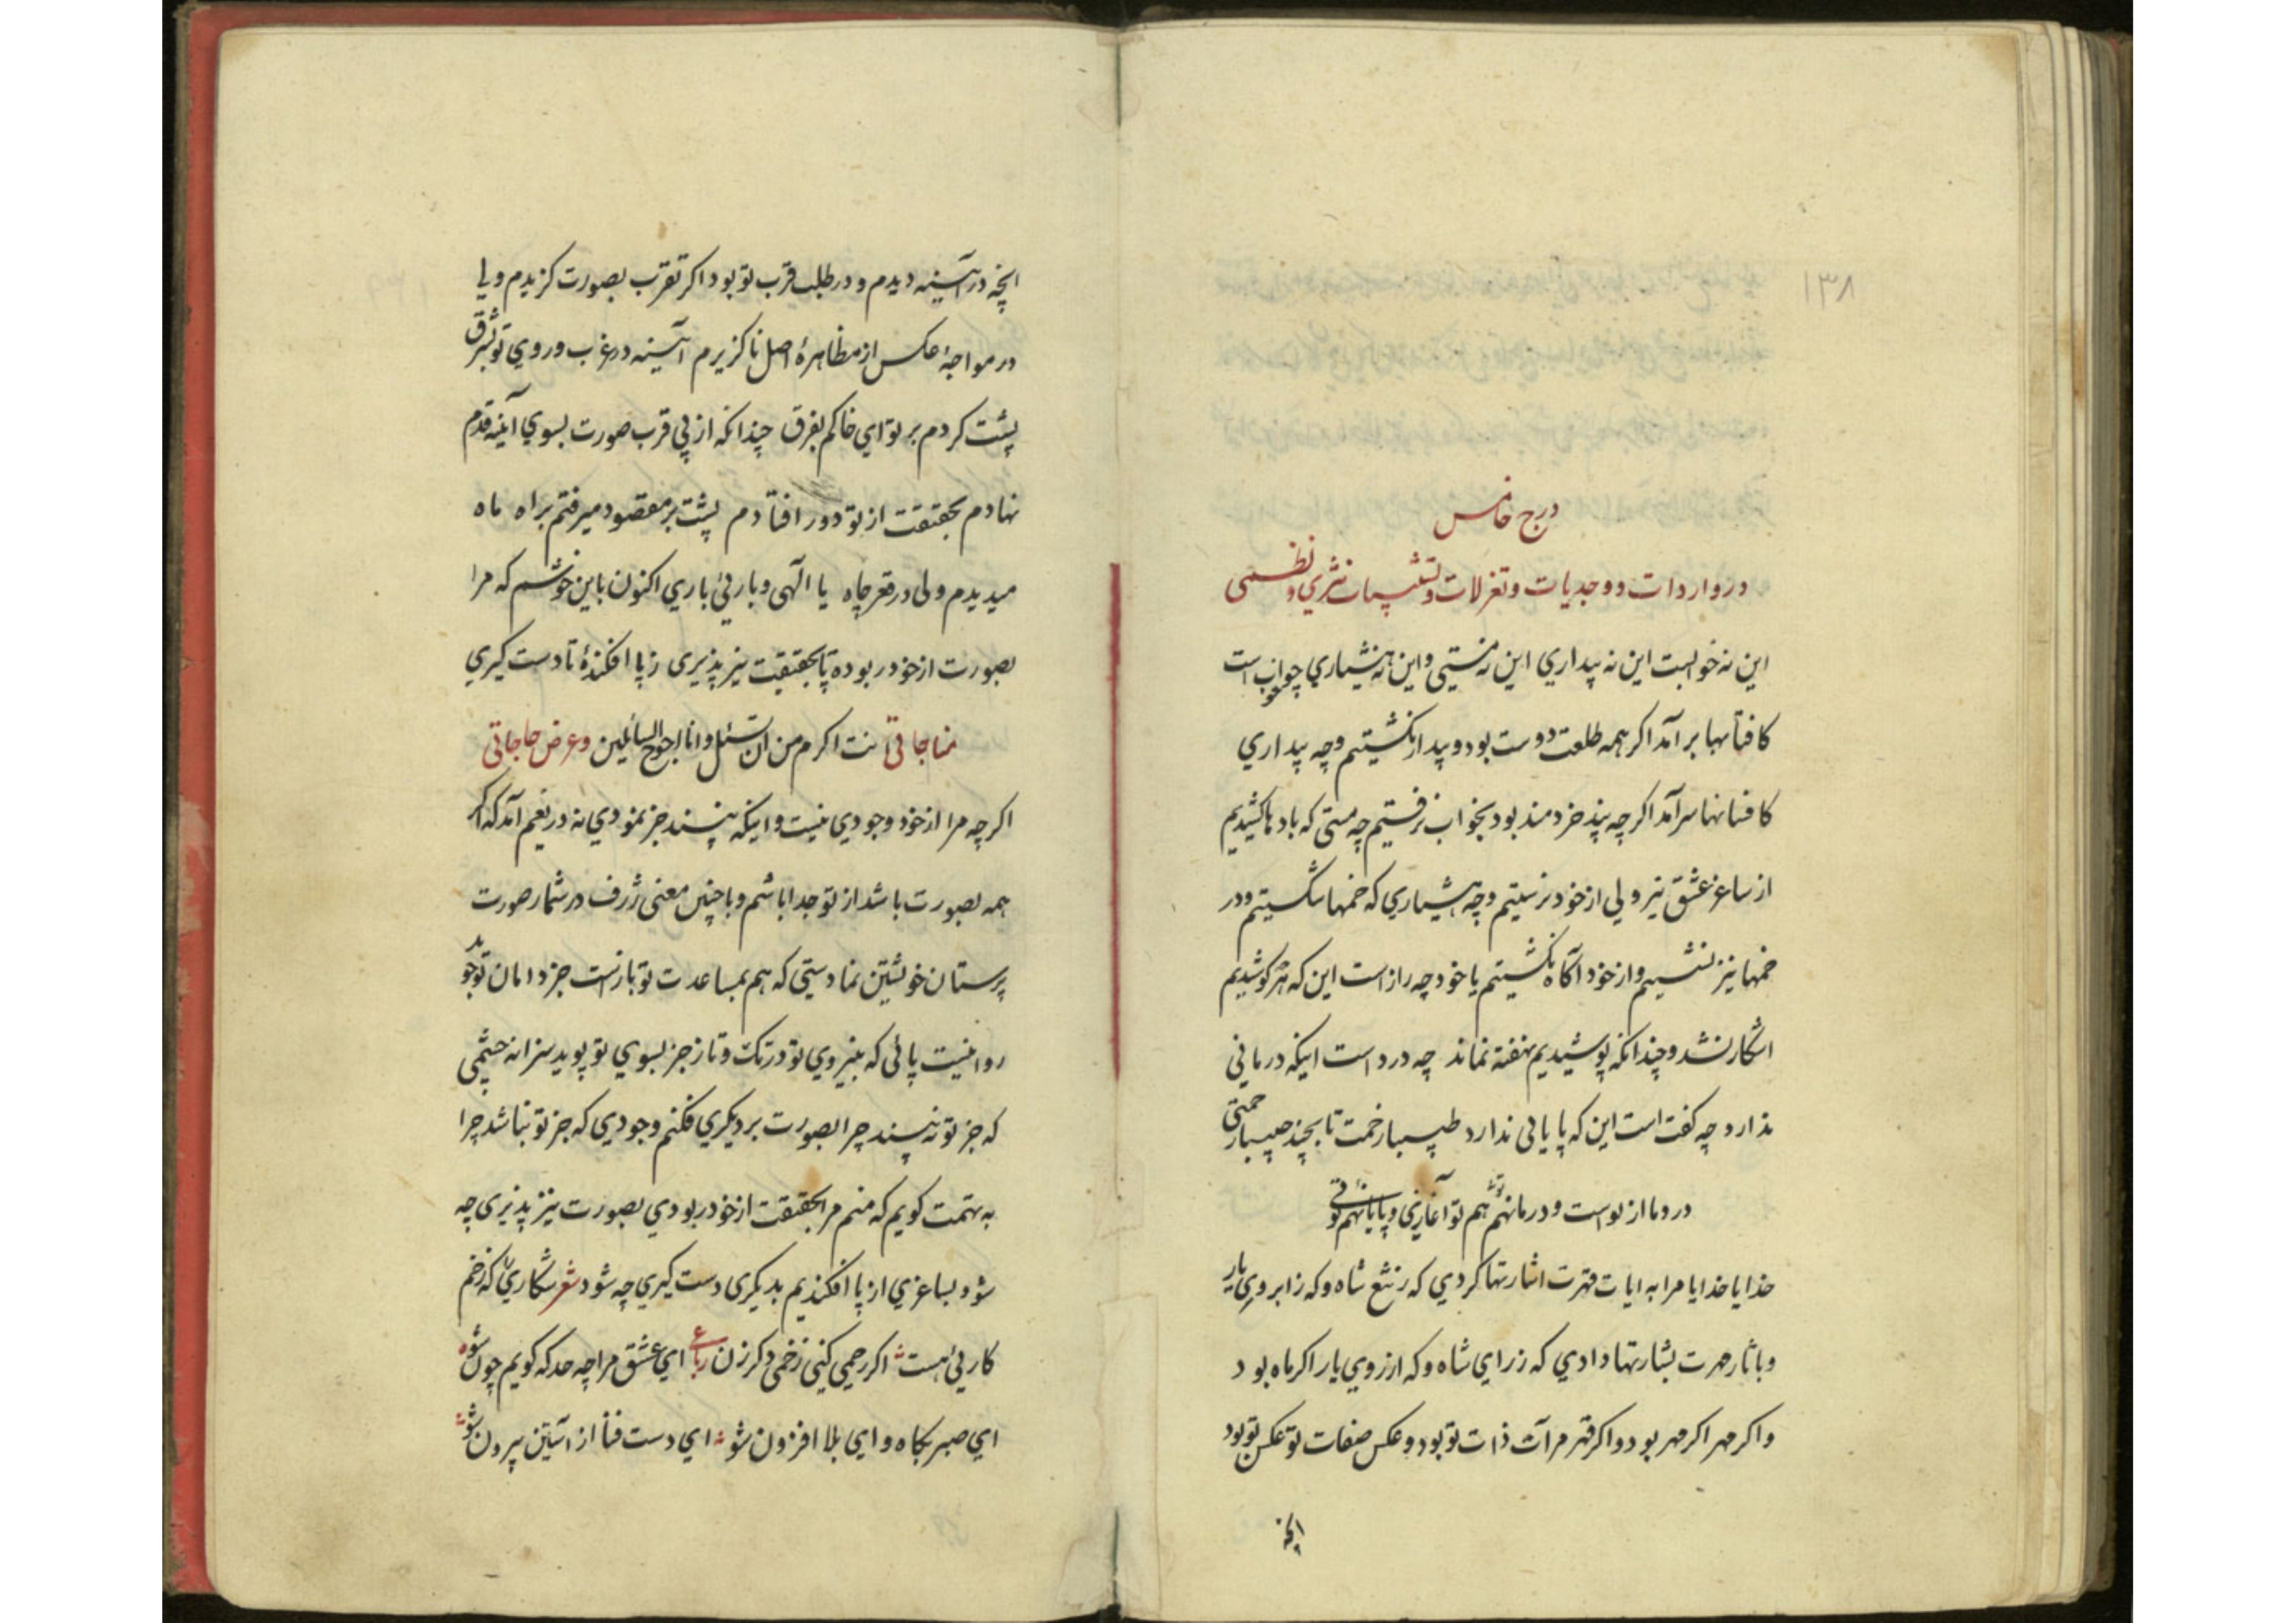 ۱۳۸
درج خامس
در واردات و وجدیات و تغزلات و تشبیهات نثری و نظمی
این نه خوابست این نه بیداری این نه مستی و این نه هشیاری چو خواب است
کافتابها برآمد اکر همه طلعت دوست بود و بیدار نکشتیم و چه بیداری
کافسانها سرآمد اکر چه پند خردمند بود بخواب نرفتیم چه مستی که بادها کشیدیم
از ساغر عشق نیز ولی از خود نرستیم و چه هشیاری که خمها شکستیم و در
خمها نیز نشستیم و از خود آکاه نکشتیم یا خود چه راز است این که هر کوشیدیم
اشکار نشد و چندانکه پوشیدیم نهفته نماند چه درد است اینکه درمانی
ندارد و چه کفت است این که پایانی ندارد طبیبا زخمت تا بچند حبیبا رحمتی
درد ما از تو است و درمانهم توئی هم تو آغازی و پایانهم توئی
خدایا خدایا مرا به ایات قهرت اشارتها کردی که ز تیغ شاه و که ز ابروی یار
و باثار مهرت بشارتها دادی که ز رای شاه و که از روی یار اکر ماه بود
و اکر مهر اکر مهر بود و اکر قهر مرآت ذات تو بود و عکس صفات تو عکس تو بود
انچه
انچه در آینه دیدم و در طلب قرب تو بود اکر تقرب بصورت کزیدم ویا
در مواجهٔ عکس از مظاهرهٔ اصل ناکزیرم آینه در غرب و روی تو بشرق
پشت کردم بر تو ای خاکم بفرق چندانکه از پی قرب صورت بسوی آینه قدم
نهادم بحقیقت از تو دور افتادم پشت بر مقصود میرفتم براه ماه
میدیدم ولی در قعر چاه یا الهی و بارئی باری اکنون باین خوشم که مرا
بصورت از خود ربوده تا بحقیقت نیز پذیری ز پا افکندهٔ تا دست کیری
مناجاتی انت اکرم من ان تسئل وانا احوج السائلین و عرض حاجاتی
اکر چه مرا از خود وجودی نیست و اینکه بینند جز نمودی نه دریغم آمد که اکر
همه بصورت باشد از تو جدا باشم و با چنین معنی ژرف در شمار صورت
پرستان خویشتن نما دستی که هم بمساعدت تو بازست جز دامان تو جوید
روا نیست پائی که بنیروی تو در تک و تاز جز بسوی تو پوید سزا نه چشمی
که جز تو نه بیند چرا بصورت بر دیکری فکنم وجودی که جز تو نباشد چرا
به تهمت کویم که منم مرا بحقیقت از خود ربودی بصورت نیز پذیری چه
شود بساغری از پا افکندیم بدیکری دست کیری چه شود شعر شکاری را که زخم
کاریی هست اکر رحمی کنی زخمی دکر زن رباعی ای عشق مرا چه حد که کویم چون شو
ای صبر بکاه و ای بلا افزون شو ای دست فنا از آستین بیرون شو